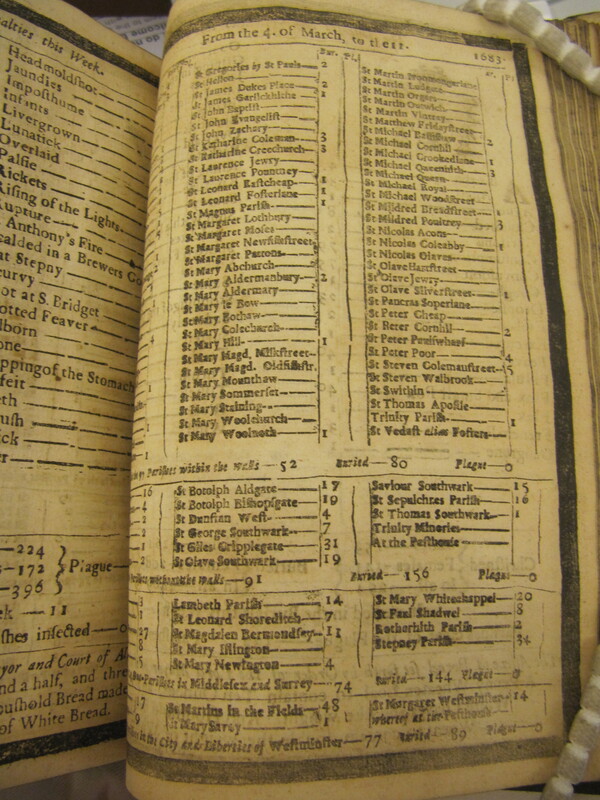 alties this Week.
Headmoldshot
Jaundies
Imposthume
Infants
Livergrown
Lunatick
Overlaid
Palsie
Rickets
Rising of the Lights
Rupture
Anthony's Fire
calded in a Brewers
at Stepny
curvy
ot at S. Bridget
otted Feaver
lborn
one
pping of the Stomach
feit
eth
ush
ick
224
172 Plague
396
11
shes infected
ayor and Court of Al
nd a half, and three
oushold Bread made
of White Bread.
From the 4. of March, to the 11. 1683.
Bur. Pl.
St Gregories by St Pauls 2
St Hellen
St James Dukes Place 2
St James Garlickhithe 1
St John Baptist
St John Evangelist
St John Zachary
St Katharine Coleman 3
St Katharine Creechurch 3
St Laurence Jewry
St Laurence Pountney
St Leonard Eastcheap 1
St Leonard Fosterlane 1
St Magnus Parish 1
St Margaret Lothbury
St Margaret Moses
St Margaret Newfishstreet
St Margaret Pattons
St Mary Abchurch
St Mary Aldermanbury 2
St Mary Aldermary
St Mary le Bow
St Mary Bothaw
St Mary Colechurch
St Mary Hill 1
St Mary Magd. Milkstreet
St Mary Magd. Oldfishstr.
St Mary Mounthaw
St Mary Sommerset
St Mary Staining
St Mary Woolchurch
St Mary Woolnoth 1
St Martin Ludgate
St Martin Orgars
St Martin Outwich
St Martin Vintrey
St Matthew Fridaystreet
St Michael Bassishaw 2
St Michael Cornhil
St Michael Crookedlane 1
St Michael Queenhith 3
St Michael Quern
St Michael Royal
St Michael Woodstreet
St Mildred Breadstreet 1
St Mildred Poultrey 3
St Nicolas Acons
St Nicolas Coleabby 1
St Nicolas Olaves
St Olave Hartstreet
St Olave Jewry
St Olave Silverstreet 1
St Pancras Soperlane
St Peter Cheap
St Peter Cornhil 2
St Peter Paulswharf
St Peter Poor 4
St Steven Colemanstreet 5
St Steven Walbrook
St Swithin
St Thomas Apostle
Trinity Parish 1
St Vedast alias Fosters
Parishes within the Walls 52 Buried 80 Plague 0
St Botolph Aldgate 17
St Botolph Bishopsgate 19
St Dunstan West 4
St George Southwark 7
St Giles Cripplegate 31
St Olave Southwark 19
Saviour Southwark 15
St Sepulchres Parish 16
St Thomas Southwark 1
Trinity Minories
At the Pesthouse
without the Walls 91 Buried 156 Plague 0
Lambeth Parish 14
St Leonard Shoreditch 7
St Magdalen Bermondsey 11
St Mary Islington
St Mary Newington 4
St Mary Whitechappel 20
St Paul Shadwel 8
Rotherhith Parish 2
Stepney Parish 34
Parishes in Middlesex and Surrey 74 Buried 144 Plague 0
St Martins in the Fields 48
St Mary Savoy 1
St Margaret Westminster 14
whereof at the Pesthouse
in the City and Liberties of Westminster 77 Buried 89 Plague 0